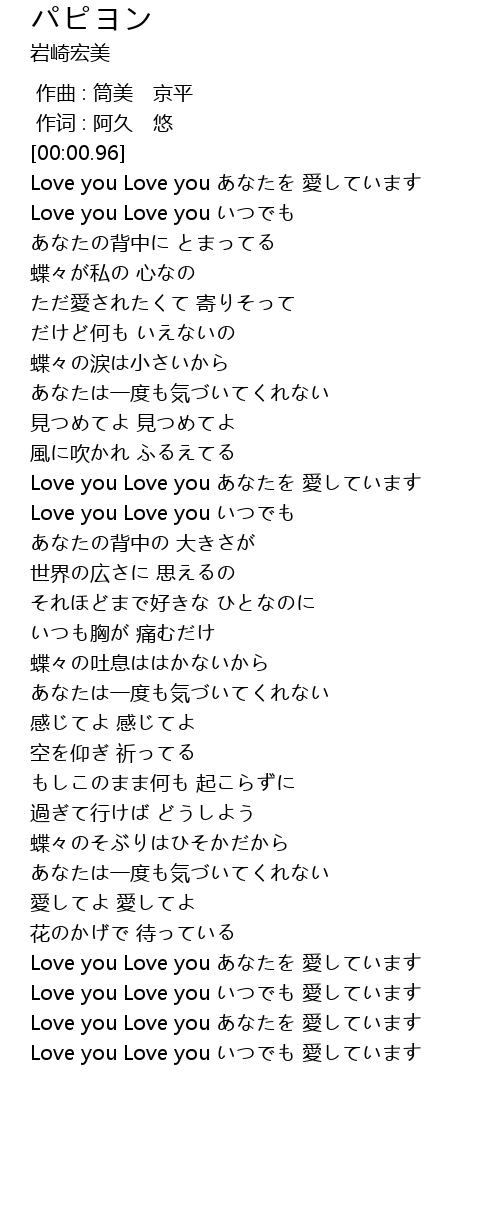 パピヨン
岩崎宏美
作曲 : 筒美　京平
作词 : 阿久　悠
[00:00.96]
Love you Love you あなたを 愛しています
Love you Love you いつでも
あなたの背中に とまってる
蝶々が私の 心なの
ただ愛されたくて 寄りそって
だけど何も いえないの
蝶々の涙は小さいから
あなたは一度も気づいてくれない
見つめてよ 見つめてよ
風に吹かれ ふるえてる
Love you Love you あなたを 愛しています
Love you Love you いつでも
あなたの背中の 大きさが
世界の広さに 思えるの
それほどまで好きな ひとなのに
いつも胸が 痛むだけ
蝶々の吐息ははかないから
あなたは一度も気づいてくれない
感じてよ 感じてよ
空を仰ぎ 祈ってる
もしこのまま何も 起こらずに
過ぎて行けば どうしよう
蝶々のそぶりはひそかだから
あなたは一度も気づいてくれない
愛してよ 愛してよ
花のかげで 待っている
Love you Love you あなたを 愛しています
Love you Love you いつでも 愛しています
Love you Love you あなたを 愛しています
Love you Love you いつでも 愛しています